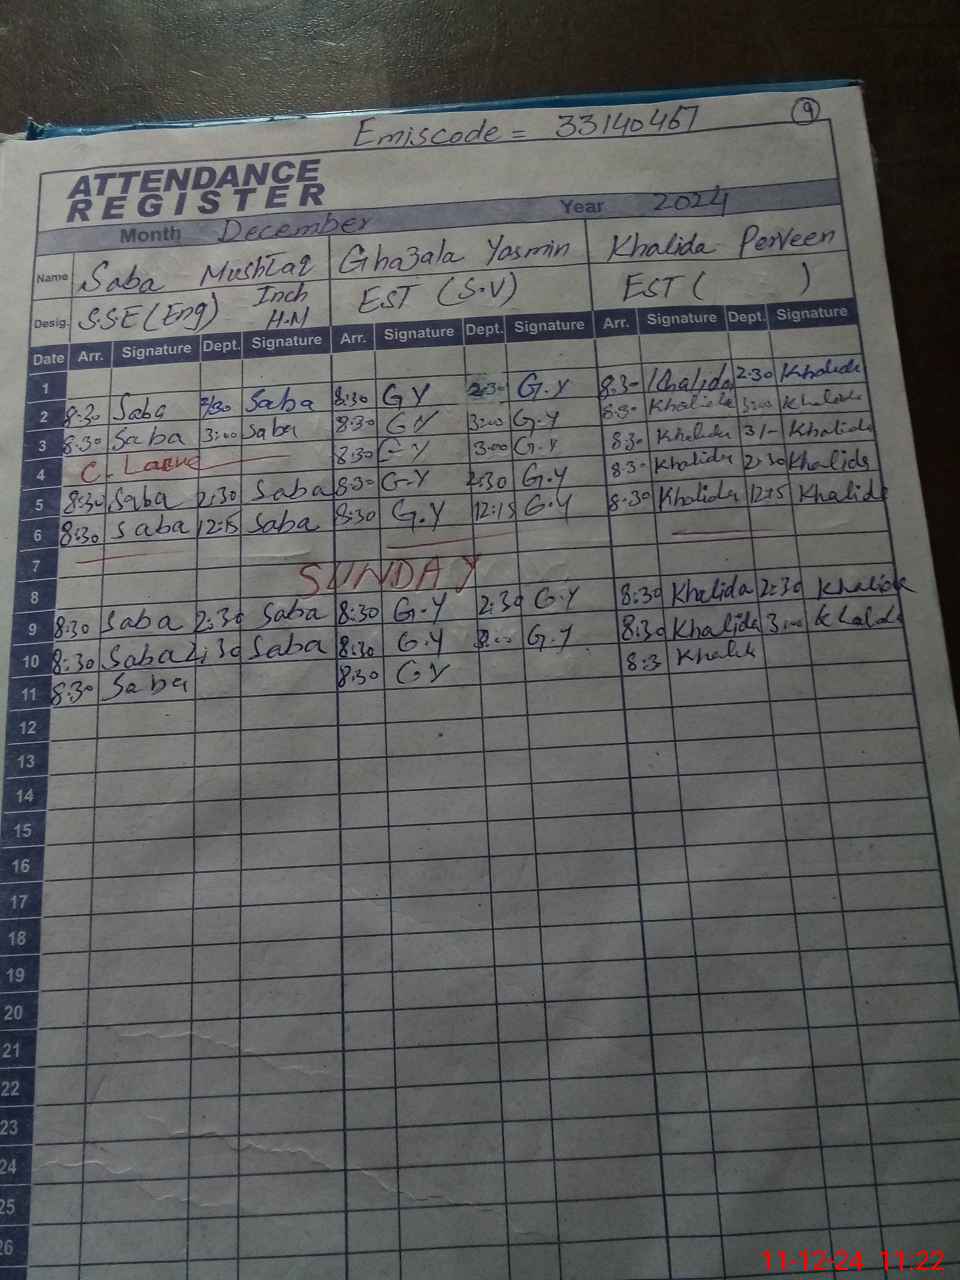 Emiscode = 33140467
9
ATTENDANCE
REGISTER
Month December Year 2024
Name Saba Mushtaq Ghazala Yasmin Khalida Perveen
Desig. S.S.E (Eng) Inch H.M EST (S.V) EST ( )
Date Arr. Signature Dept. Signature Arr. Signature Dept. Signature Arr. Signature Dept. Signature
1
2 8:30 Saba 2:30 Saba 8:30 G Y 2:30 G.Y 8:30 Khalida 2:30 Khalida
3 8:30 Saba 3:00 Saba 8:30 G Y 3:00 G.Y 8:30 Khalida 3:00 Khalida
4 C. Leave 8:30 G Y 3:00 G.Y 8:30 Khalida 3/- Khalida
5 8:30 Saba 2:30 Saba 8:30 G.Y 2:30 G.Y 8:30 Khalida 2:30 Khalida
6 8:30 Saba 12:15 Saba 8:30 G.Y 12:15 G.Y 8:30 Khalida 12:15 Khalida
7
8 SUNDAY
9 8:30 Saba 2:30 Saba 8:30 G.Y 2:30 G.Y 8:30 Khalida 2:30 Khalida
10 8:30 Saba 2:30 Saba 8:30 G.Y G.Y 8:30 Khalida 3:00 Khalida
11 8:30 Saba 8:30 G Y 8:3 Khalid
12
13
14
15
16
17
18
19
20
21
22
23
24
25
26
11-12-24 11:22